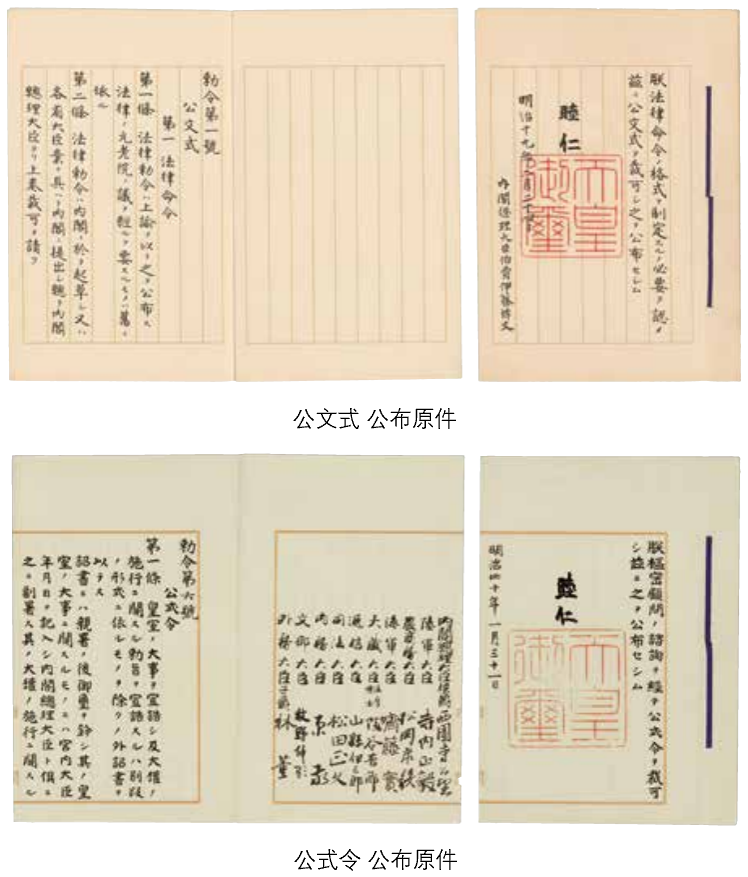 朕法律命令ノ格式ヲ制定スルノ必要ヲ認メ
茲ニ公文式ヲ裁可シ之ヲ公布セシム
睦仁
天皇
御璽
明治十九年二月二十四日
内閣總理大臣伯爵伊藤博文
勅令第一號
公文式
第一 法律命令
第一條 法律勅令ハ上諭ヲ以テ之ヲ公布ス
法律ノ元老院ノ議ヲ經ルヲ要スルモノハ舊ニ
依ル
第二條 法律勅令ハ内閣ニ於テ起草シ又ハ
各省大臣案ヲ具ヘテ内閣ニ提出シ總テ内閣
總理大臣ヨリ上奏裁可ヲ請フ
公文式 公布原件
朕樞密顧問ノ諮詢ヲ經テ公式令ヲ裁可
シ茲ニ之ヲ公布セシム
睦仁
天皇
御璽
明治四十年一月三十一日
内閣總理大臣侯爵西園寺公望
陸軍大臣 寺内正毅
農商務大臣 松岡康毅
海軍大臣 齋藤實
大藏大臣 阪谷芳郎
遞信大臣 山縣伊三郎
司法大臣 松田正久
内務大臣 原敬
文部大臣 牧野伸顯
外務大臣子爵林董
勅令第六號
公式令
第一條 皇室ノ大事ヲ宣誥シ及大權ノ
施行ニ關スル勅旨ヲ宣誥スルハ別段
ノ形式ニ依ルモノヲ除クノ外詔書ヲ
以テス
詔書ニハ親署ノ後御璽ヲ鈐シ其ノ皇
室ノ大事ニ關スルモノニハ宮内大臣
年月日ヲ記入シ内閣總理大臣ト倶ニ
之ニ副署ス其ノ大權ノ施行ニ關スル
公式令 公布原件